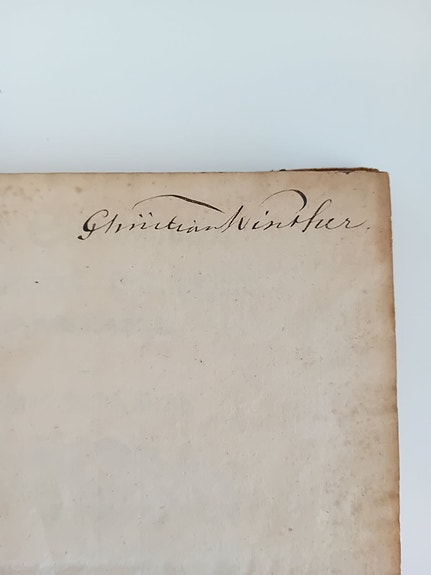 Christian Winther.